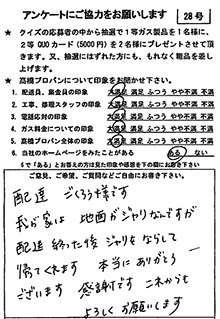 アンケートにご協力をお願いします 28号
★ クイズの応募者の中から抽選で1等ガス製品を1名様に、
2等QUOカード(5000円)を2名様にプレゼントさせて頂き
ます。又、抽選にはずれた方にも、もれなく粗品を差し
上げます。
★ 高橋プロパンについて印象をお聞かせ下さい。
1. 配送員、集金員の印象 大満足 満足 ふつう やや不満 不満
2. 工事、修理スタッフの印象 大満足 満足 ふつう やや不満 不満
3. 電話応対の印象 大満足 満足 ふつう やや不満 不満
4. ガス料金についての印象 大満足 満足 ふつう やや不満 不満
5. 高橋プロパン全体の印象 大満足 満足 ふつう やや不満 不満
6. 当社のホームページをみたことがある ある ない
6で「ある」とお答えの方は見た印象や感想を下の欄にお書き下さい
ご意見、ご希望、ご質問などご自由にお書き下さい。
配達 ごくろう様です
我が家は 地面がジャリなんですが
配達 終った後 ジャリをならして
帰ってくれます 本当にありがとう
ございます 感謝です これからも
よろしくお願いします